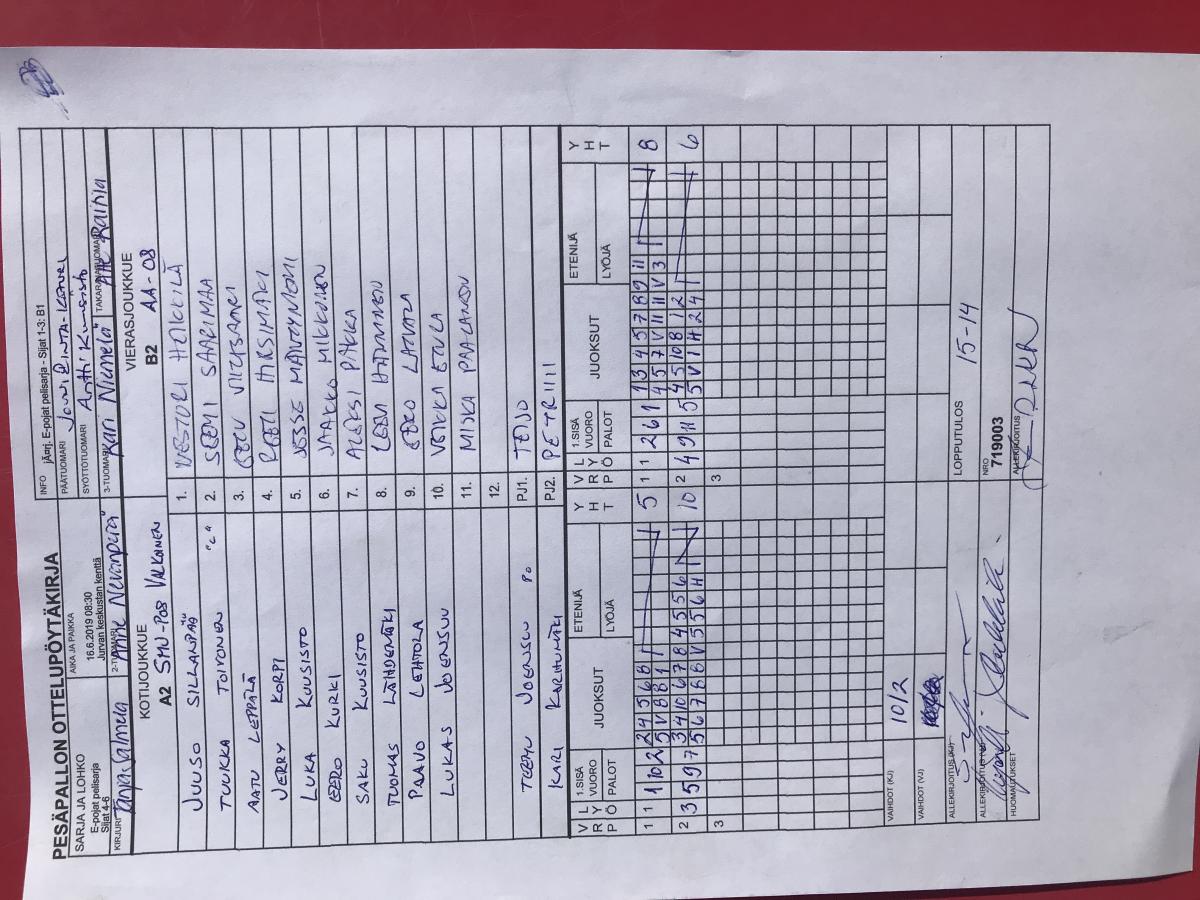 PESÄPALLON OTTELUPÖYTÄKIRJA
SARJA JA LOHKO
E-pojat pelisarja
Sijat 4-6
AIKA JA PAIKKA
16.6.2019 08:30
Jurvan keskustan kenttä
INFO jÄ¤rj. E-pojat pelisarja - Sijat 1-3: B1
PÄÄTUOMARI
SYÖTTÖTUOMARI Antti Kuusisto
KIRJURI Tanja Salmela
2-TUOMARI
3-TUOMARI Kari Niemelä
TAKARAJATUOMARI
KOTIJOUKKUE
A2 SMJ-P08 VALKOINEN
VIERASJOUKKUE
B2 AA-08
JUUSO SILLANPÄÄ
TUUKKA TOIVONEN "C"
AATU LEPPÄLÄ
JERRY KORPI
LUKA KUUSISTO
EERO KURKI
SAKU KUUSISTO
TUOMAS LÄHDEMÄKI
PAAVO LEHTOLA
LUKAS JOENSUU
TEEMU JOENSUU PO
KARI KARHUMÄKI
1. NESTORI HEIKKILÄ
2. EEMI SAARIMAA
3. EELI
4. PEETU HIRSIMÄKI
5. JESSE MÄNTYNIEMI
6. JAAKKO MIKKONEN
7. ALEKSI
8. LEEVI
9. EERO LATVALA
10. VEIKKA ETULA
11. MISKA PAALANEN
12.
PJ1. TEIJO
PJ2. PETRI
V R P
L Y Ö
1.SISÄ VUORO
PALOT
JUOKSUT
ETENIJÄ
LYÖJÄ
Y H T
V R P
L Y Ö
1.SISÄ VUORO
PALOT
JUOKSUT
ETENIJÄ
LYÖJÄ
Y H T
1 1 1 10 2 2 4 5 6 8 5
5 V 8 8 1
2 3 5 9 7 3 4 10 6 7 8 4 5 5 6 10
5 6 7 8 8 V 5 5 6 H
3
1 1 2 6 1 1 3 4 5 7 8 9 11 8
4 5 7 V 11 11 V 3
2 4 9 11 5 4 5 10 8 1 2 6
5 V 1 H 2 4
3
VAIHDOT (KJ) 10/2
VAIHDOT (VJ)
LOPPUTULOS 15-14
ALLEKIRJOITUS (KJ)
ALLEKIRJOITUS
HUOMAUTUKSET
NRO
719003
ALLEKIRJOITUS